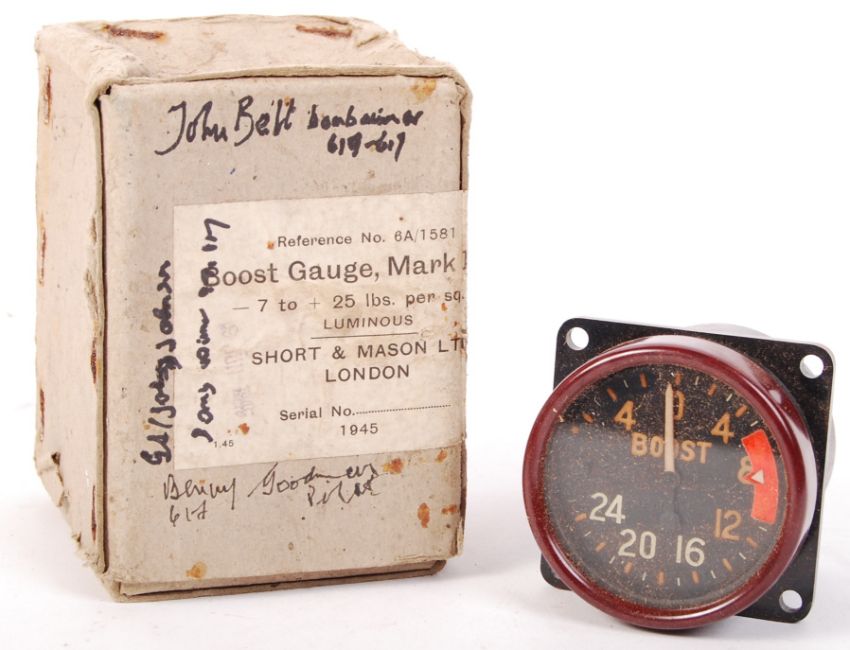 John Bell bombaimer
619-617
Reference No. 6A/1581
Boost Gauge, Mark
— 7 to + 25 lbs. per sq.
LUMINOUS
SHORT & MASON LTD
LONDON
Serial No.
1945
1.45
Johnson
Benny Goodman
617 Pilot
0
4 4
BOOST
8
24 12
20 16